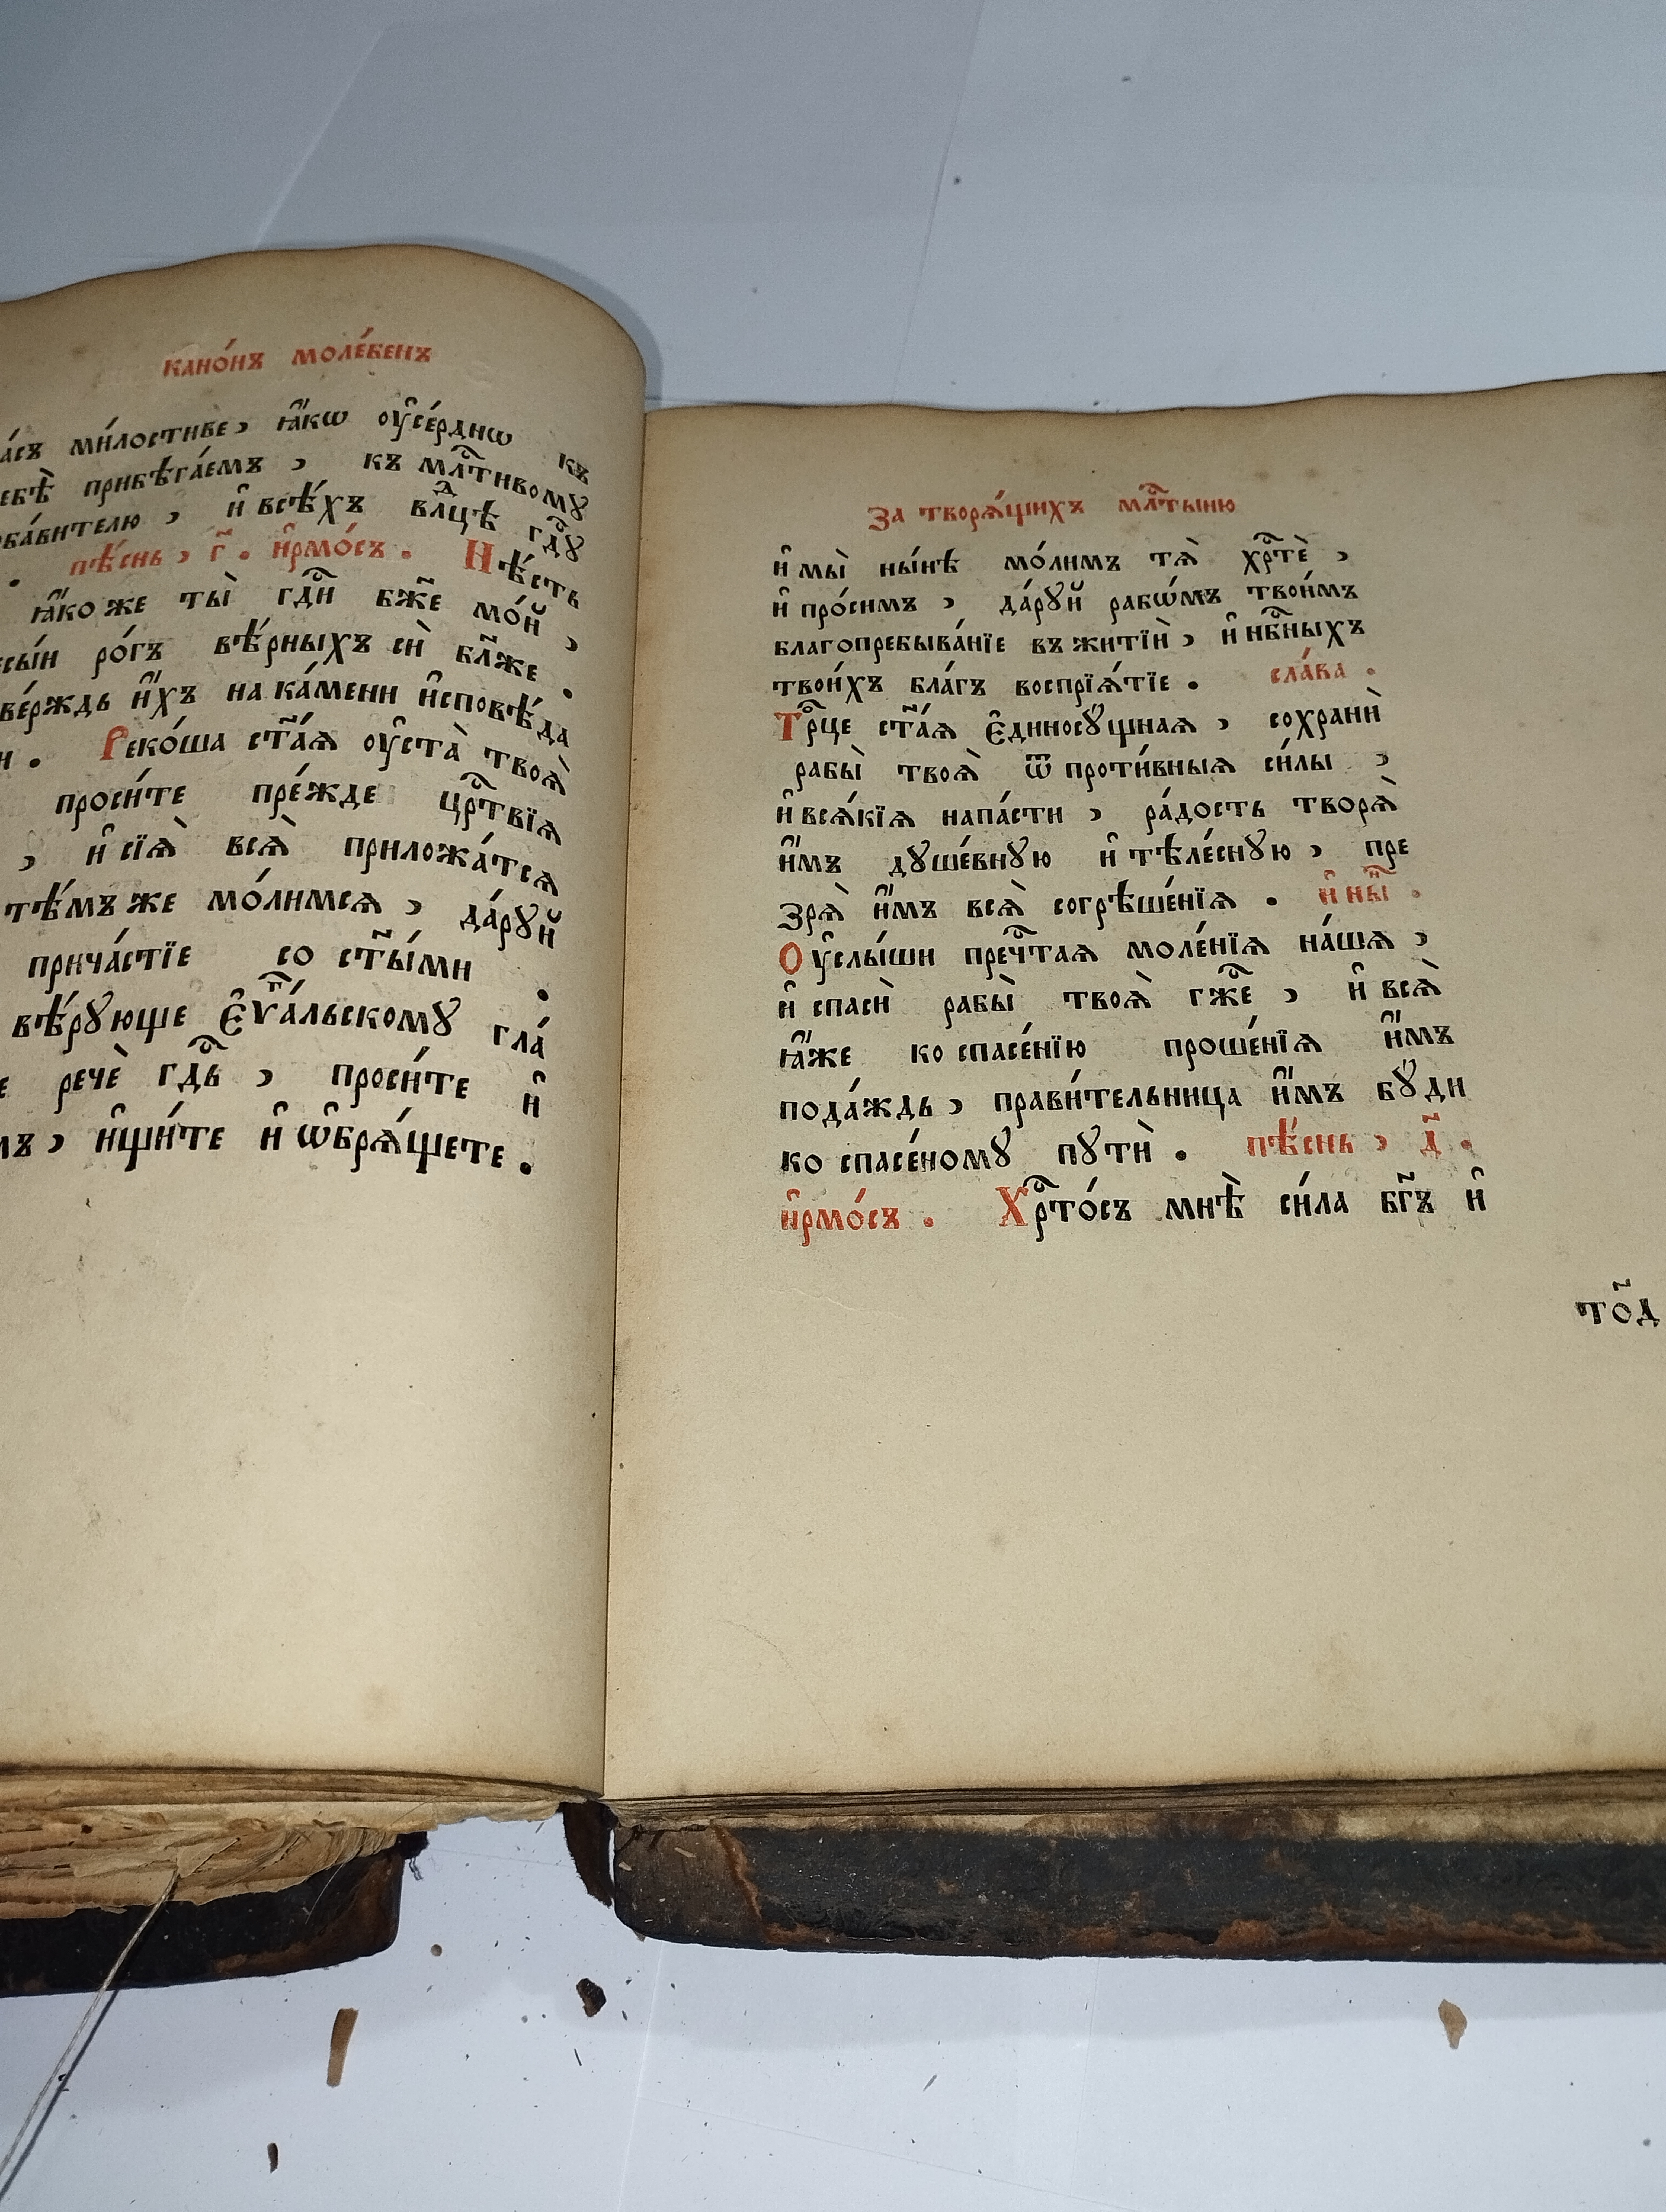 кано́нъ моле́бенъ
ми́лостиве, ꙗ҆́кѡ ᲂу҆се́рднѡ къ
прибѣга́емъ, къ млⷭ҇тивомꙋ
и҆ всѣ́хъ влⷣцѣ гдⷭ҇ꙋ
. пѣ́снь, г҃. і҆рмо́съ. Нѣ́сть
ꙗ҆́коже ты̀ гдⷭ҇и бж҃е мо́й,
ро́гъ вѣ́рныхъ сѝ бл҃же.
и҆́хъ на ка́мени и҆сповѣ́да
. Реко́ша ст҃а́ѧ ᲂу҆ста̀ твоѧ̀
проси́те пре́жде црⷭ҇твїѧ
, и҆ сїѧ̀ всѧ̀ приложа́тсѧ
тѣ́мъ же мо́лимсѧ, да́рꙋй
прича́стїе со ст҃ы́ми.
вѣ́рꙋюще є҆ѵⷢ҇а́льскомꙋ гла́
речѐ гдⷭ҇ь, проси́те и҆
, и҆щи́те и҆ ѡ҆брѧ́щете.
За творѧ́щихъ млⷭ҇тыню
и҆ мы̀ ны́нѣ мо́лимъ тѧ̀ хрⷭ҇тѐ,
и҆ про́симъ, да́рꙋй рабѡ́мъ твои́мъ
благопребыва́нїе въ житїѝ, и҆ нбⷭ҇ныхъ
твои́хъ бла́гъ воспрїѧ́тїе. сла́ва.
Трⷪ҇це ст҃а́ѧ є҆диносꙋ́щнаѧ, сохранѝ
рабы̀ твоѧ̀ ѿ проти́вныѧ си́лы,
и҆ всѧ́кїѧ напа́сти, ра́дость творѧ̀
и҆́мъ дꙋше́внꙋю и҆ тѣле́снꙋю, пре
зрѧ̀ и҆́мъ всѧ̀ согрѣше́нїѧ. и҆ нн҃ѣ.
Оу҆слы́ши пречⷭ҇таѧ моле́нїѧ на́шѧ,
и҆ спасѝ рабы̀ твоѧ̀ гжⷭ҇е, и҆ всѧ̀
ꙗ҆́же ко спасе́нїю проше́нїѧ и҆́мъ
пода́ждь, прави́тельница и҆́мъ бꙋ́ди
ко спасе́номꙋ пꙋтѝ. пѣ́снь, д҃.
і҆рмо́съ. Хрⷭ҇то́съ мнѣ̀ си́ла бг҃ъ и҆
то҃д